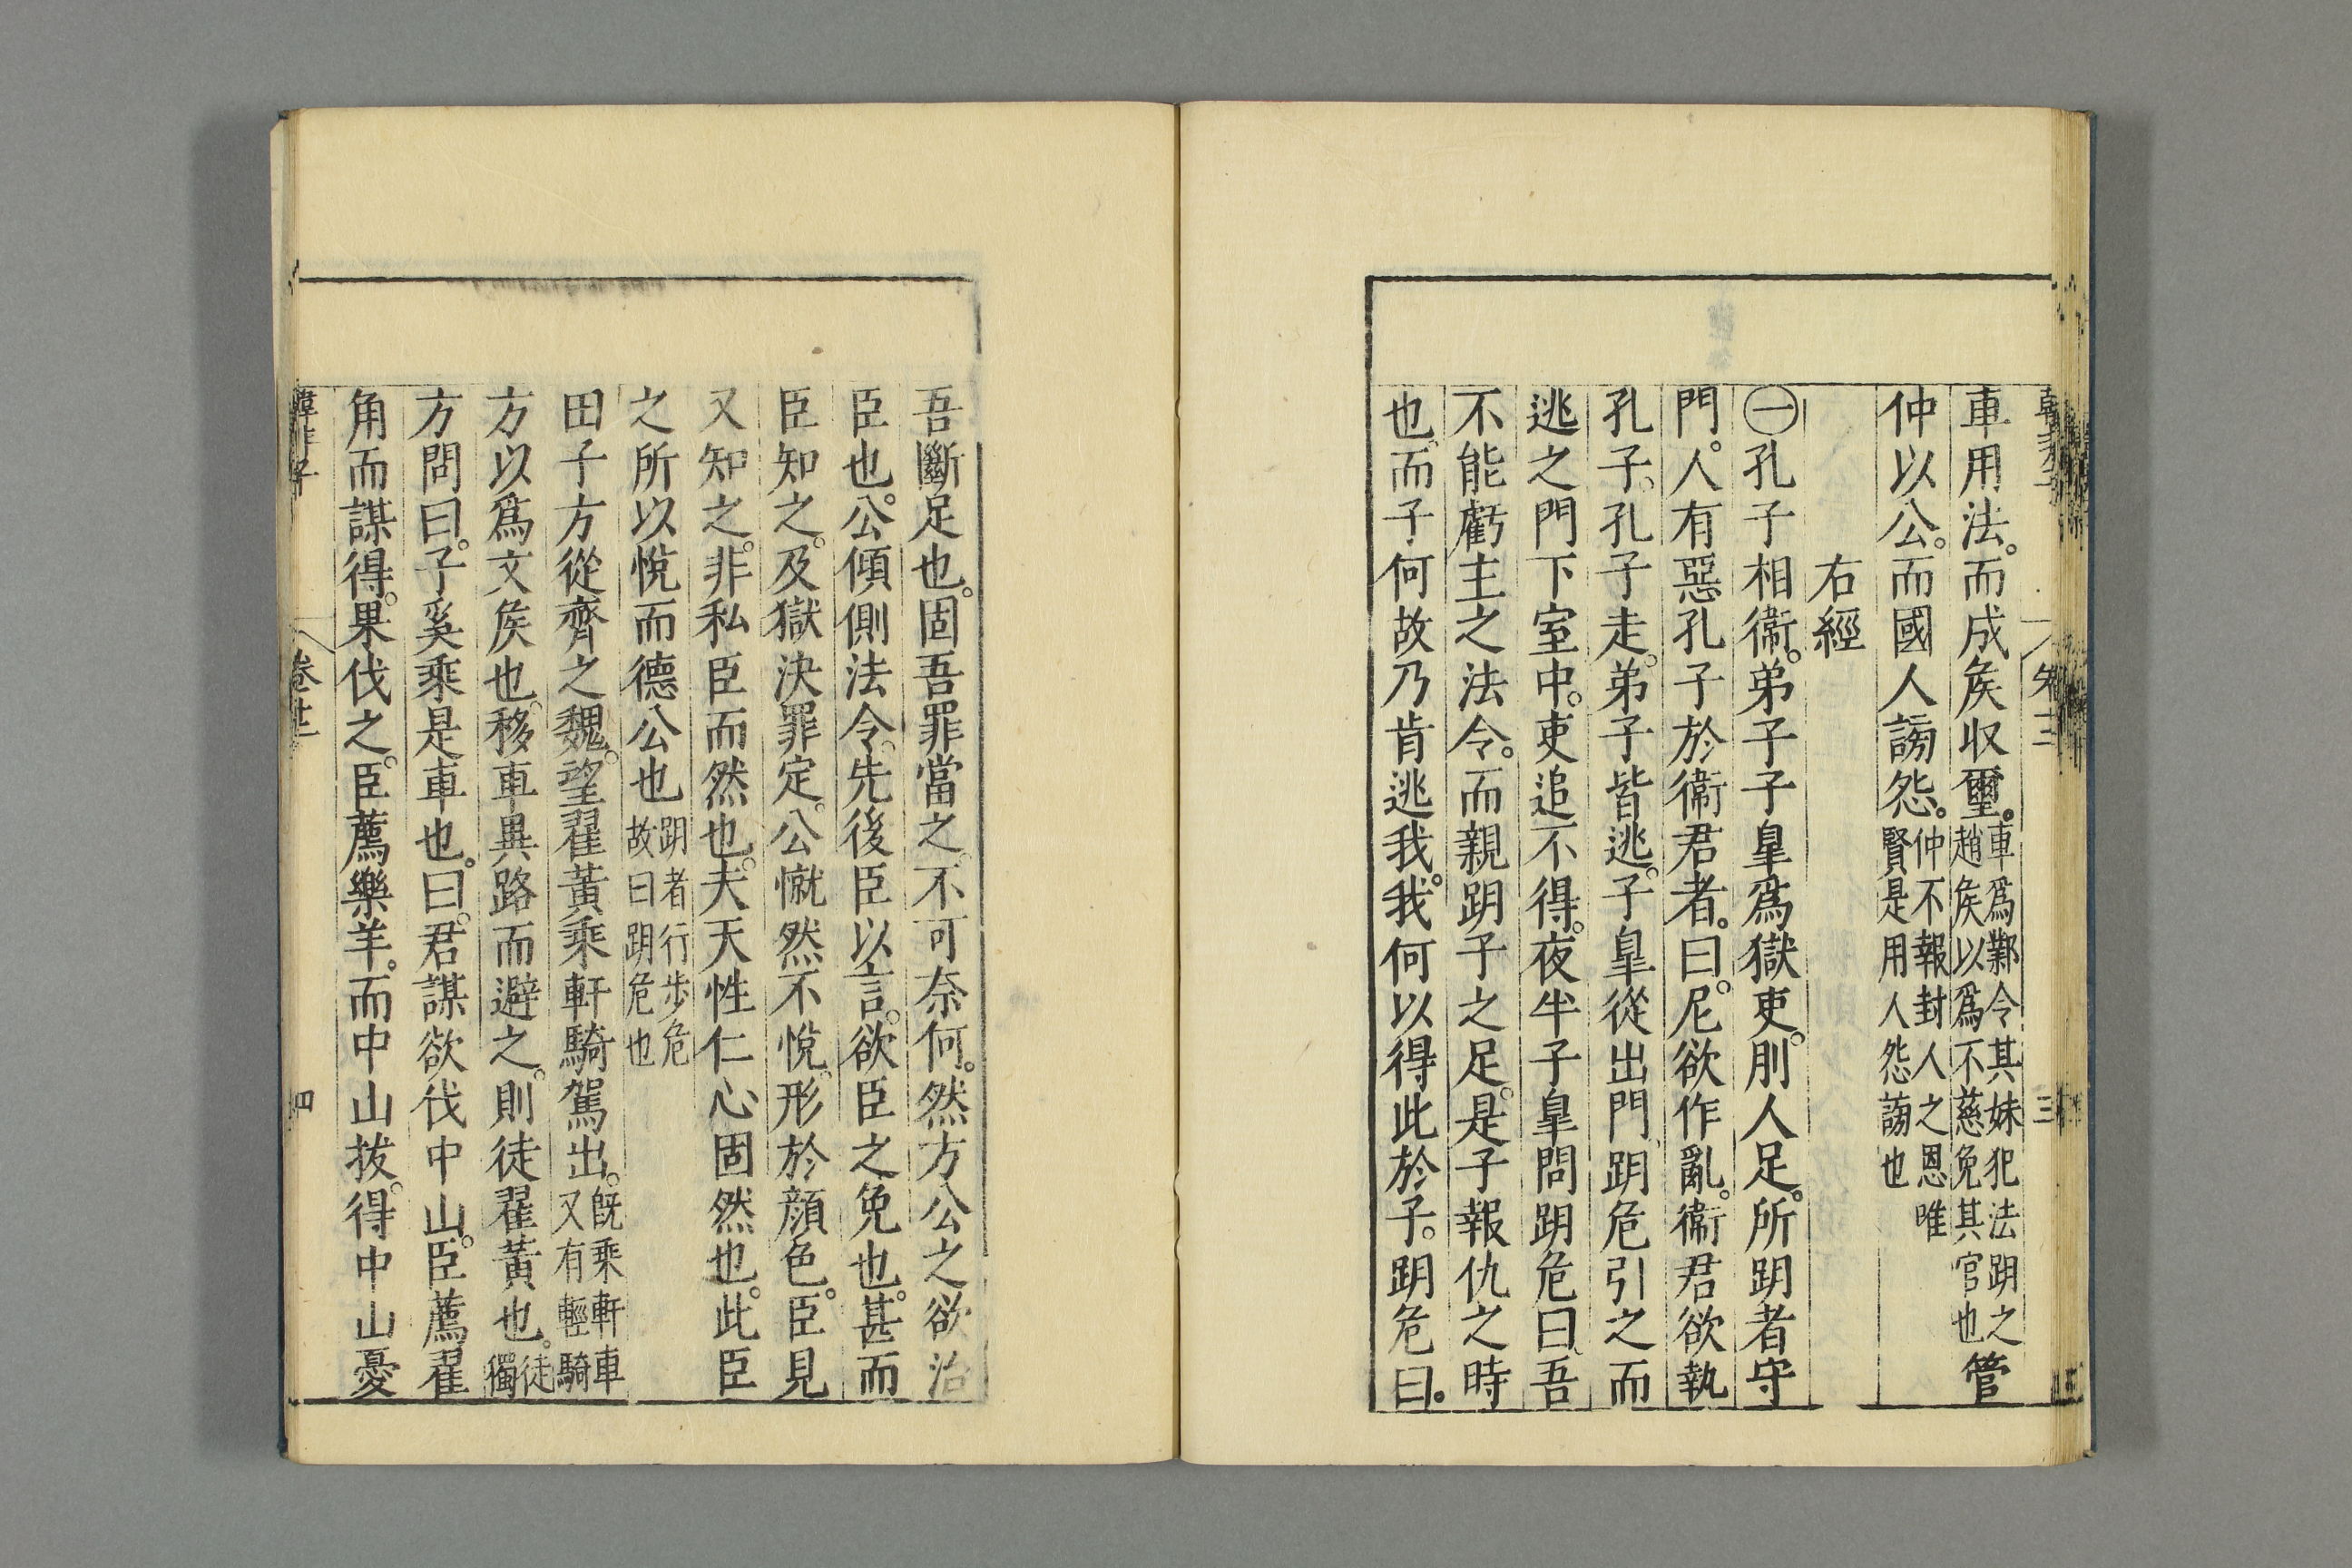 車用法。而成矦収璽。車爲鄴令其妹犯法跀之趙矦以爲不慈免其官也管
仲以公。而國人謗怨。仲不報封人之恩唯賢是用人怨謗也
右經
㊀孔子相衞。弟子子皐爲獄吏。刖人足。所跀者守
門。人有惡孔子於衞君者。曰。尼欲作亂。衞君欲執
孔子。孔子走。弟子皆逃。子皐從出門、跀危引之而
逃之門下室中。吏追不得。夜半子皐問跀危曰、吾
不能虧主之法令。而親跀子之足。是子報仇之時
也。而子何故乃肯逃我。我何以得此於子。跀危曰。
吾斷足也。固吾罪當之。不可奈何。然方公之欲治
臣也。公傾側法令。先後臣以言。欲臣之免也。甚而
臣知之。及獄決罪定。公憱然不悅。形於顔色。臣見
又知之。非私臣而然也。夫天性仁心固然也。此臣
之所以悅而德公也跀者行步危故曰跀危也
田子方從齊之魏。望翟黃乘軒騎駕出。既乘軒車又有輕騎
方以爲文矦也。移車異路而避之。則徒翟黃也。徒獨
方問曰。子奚乘是車也。曰。君謀欲伐中山。臣薦翟
角而謀得。果伐之。臣薦樂羊。而中山拔。得中山憂
韓非子 卷十二 四